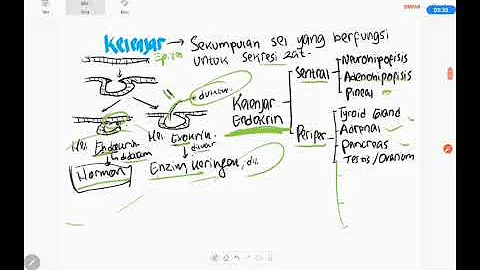 Kelenjar → Sekumpulan sel yang berfungsi
untuk sekresi zat.
Kelenjar
Endokrin
Sentral
Neurohipofisis
Adenohipofisis
Pineal
Perifer
Tyroid Gland
Adrenal
Pancreas
Testis/Ovarium
Endokrin
Eksokrin
didalam
diluar
Hormon
Enzim, keringat, dll.